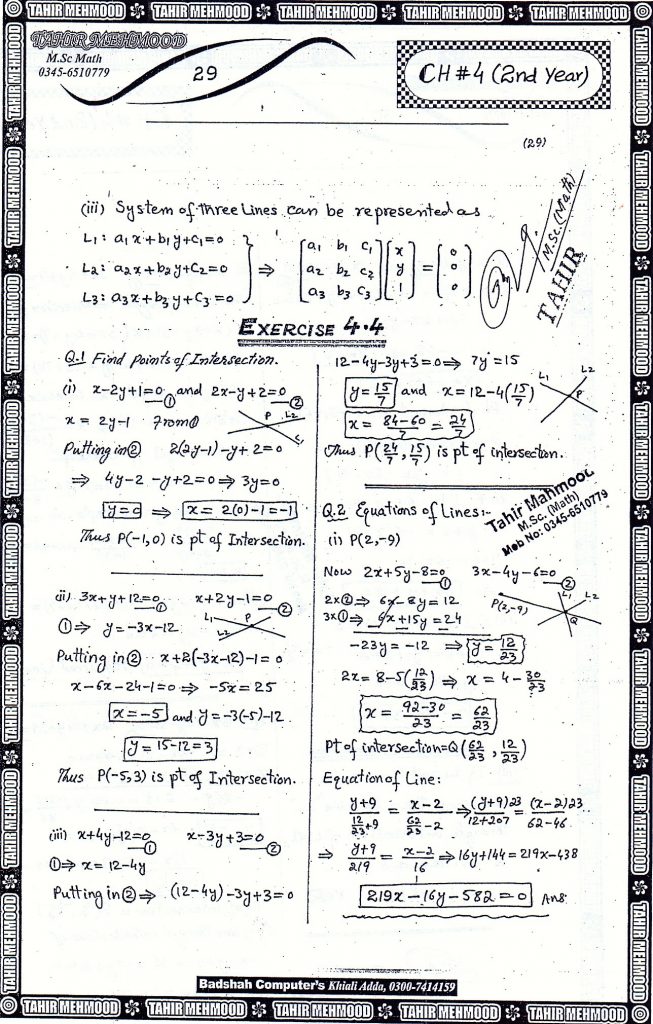 TAHIR MEHMOOD TAHIR MEHMOOD TAHIR MEHMOOD TAHIR MEHMOOD TAHIR MEHMOOD
TAHIR MEHMOOD
M.Sc Math
0345-6510779
29
CH # 4 (2nd Year)
(29)
(iii) System of three Lines can be represented as
L1: a1x+b1y+c1=0
L2: a2x+b2y+c2=0
L3: a3x+b3y+c3=0
⇒ [a1 b1 c1; a2 b2 c2; a3 b3 c3] [x; y; 1] = [0; 0; 0]
M.Sc.(Math)
TAHIR
EXERCISE 4.4
Q.1 Find points of Intersection.
(i) x-2y+1=0 ① and 2x-y+2=0 ②
x = 2y-1 From ①
P L2
L1
Putting in ② 2(2y-1)-y+2=0
⇒ 4y-2-y+2=0 ⇒ 3y=0
y=0 ⇒ x = 2(0)-1 = -1
Thus P(-1,0) is pt of Intersection.
(ii) 3x+y+12=0 ① x+2y-1=0 ②
① ⇒ y=-3x-12
L1 P
L2
Putting in ② x+2(-3x-12)-1=0
x-6x-24-1=0 ⇒ -5x=25
x=-5 and y=-3(-5)-12
y=15-12=3
Thus P(-5,3) is pt of Intersection.
(iii) x+4y-12=0 ① x-3y+3=0 ②
① ⇒ x=12-4y
Putting in ② ⇒ (12-4y)-3y+3=0
12-4y-3y+3=0 ⇒ 7y=15
y=15/7 and x=12-4(15/7)
L1 L2
P
x = 84-60/7 = 24/7
Thus P(24/7, 15/7) is pt of intersection.
Tahir Mahmool
M.Sc. (Math)
Mob No: 0345-6510779
Q.2 Equations of Lines:-
(i) P(2,-9)
Now 2x+5y-8=0 ① 3x-4y-6=0 ②
2x② ⇒ 6x-8y=12
3x① ⇒ 6x+15y=24
P(2,-9) L1 L2
Q
-23y=-12 ⇒ y=12/23
2x=8-5(12/23) ⇒ x=4-30/23
x = 92-30/23 = 62/23
Pt of intersection=Q(62/23, 12/23)
Equation of Line:
y+9/12/23+9 = x-2/62/23-2 ⇒ (y+9)23/12+207 = (x-2)23/62-46
⇒ y+9/219 = x-2/16 ⇒ 16y+144=219x-438
219x-16y-582=0 Ans.
Badshah Computer's Khiali Adda, 0300-7414159
TAHIR MEHMOOD TAHIR MEHMOOD TAHIR MEHMOOD TAHIR MEHMOOD TAHIR MEHMOOD